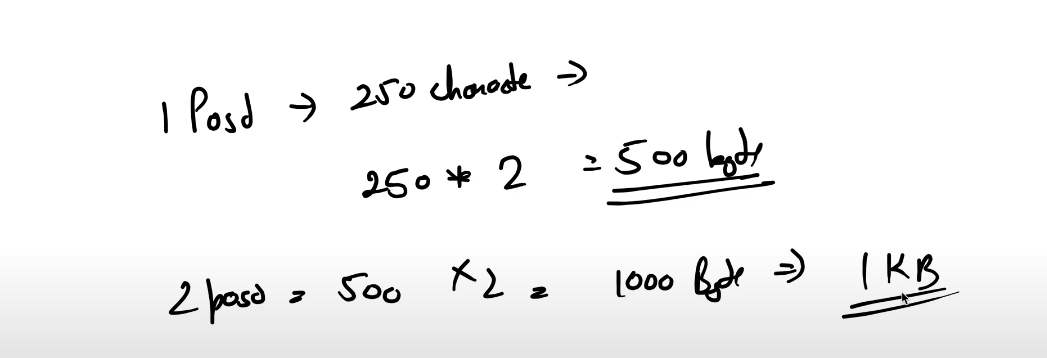 1 Post → 250 characte →
250 * 2 = 500 byte
2 post = 500 × 2 = 1000 Byte ⇒ 1 KB